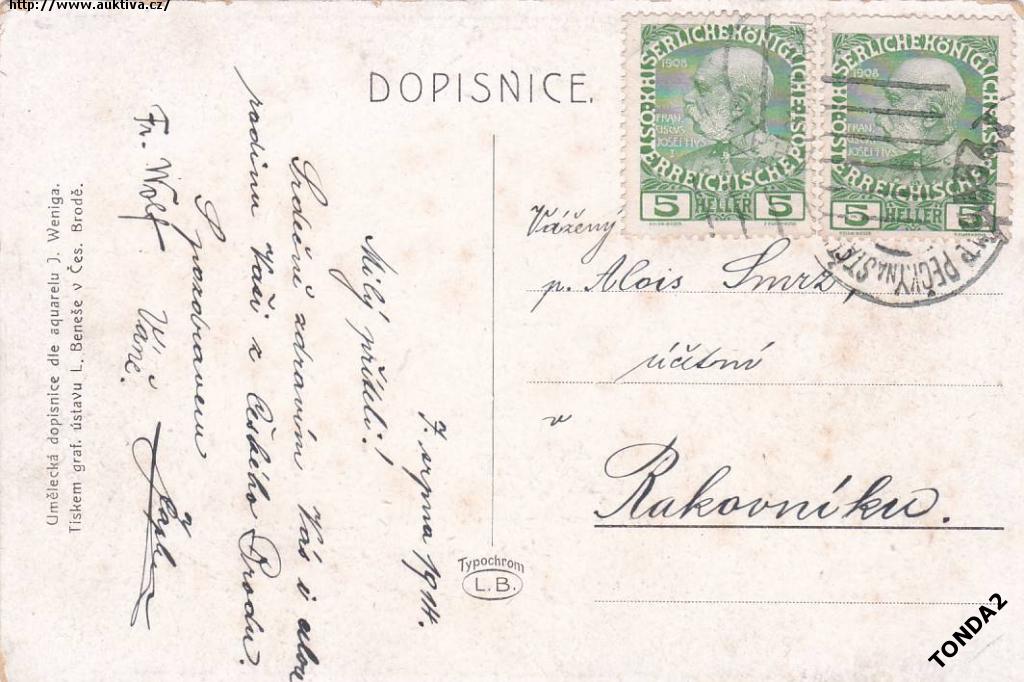 http://www.auktiva.cz/
DOPISNICE.
KAISERLICHE KÖNIGLICHE ÖSTERREICHISCHE POST
1908
FRAN
CISCVS
JOSEPHVS
5 HELLER 5
KAISERLICHE KÖNIGLICHE ÖSTERREICHISCHE POST
1908
FRAN
CISCVS
JOSEPHVS
5 HELLER 5
PEČKY NA ST
Vážený
p. Alois Smrž,
účetní
v
Rakovníku.
7. srpna 1914.
Milý příteli!
Srdečně zdravím Vás i
rodinu Vaši z Českého Brodu.
S pozdravem
Fr. Wolf
Typochrom
L.B.
Umělecká dopisnice dle aquarelu J. Weniga.
Tiskem graf. ústavu L. Beneše v Čes. Brodě.
TONDA2